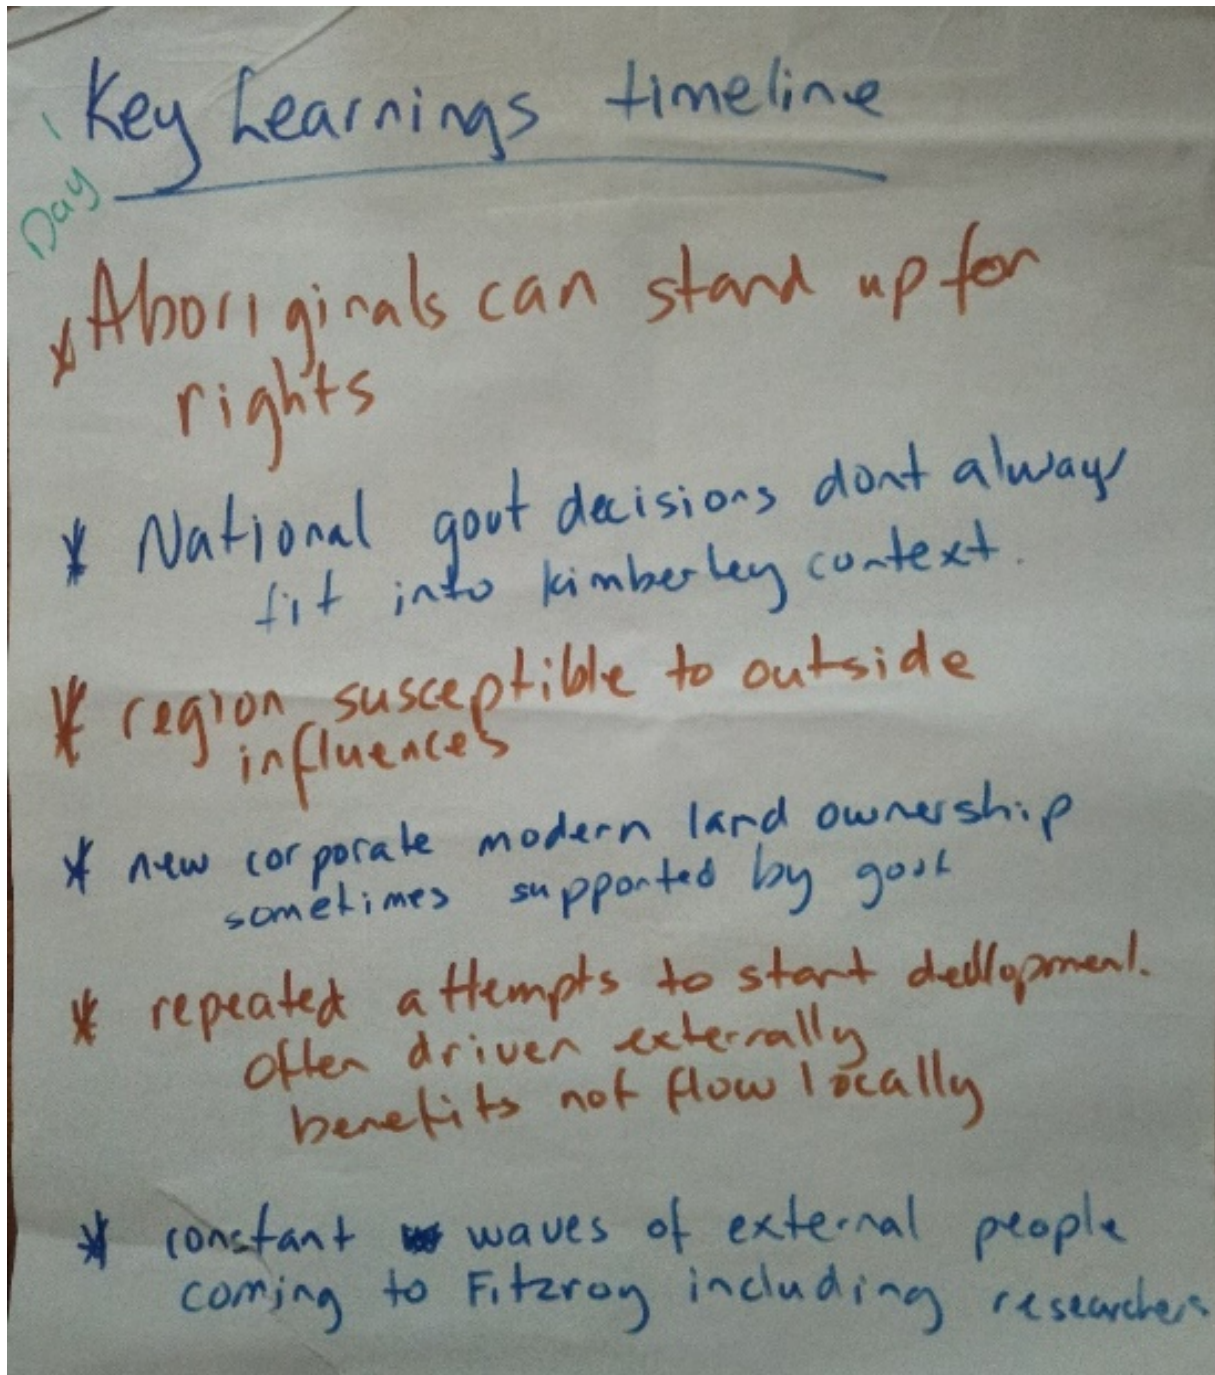 Key Learnings timeline
Day 1
* Aboriginals can stand up for
rights
* National govt decisions dont always
fit into kimberley context.
* region susceptible to outside
influences
* new corporate modern land ownership
sometimes supported by govt
* repeated attempts to start devlopment.
often driven externally
benefits not flow locally
* constant waves of external people
coming to Fitzroy including researchers